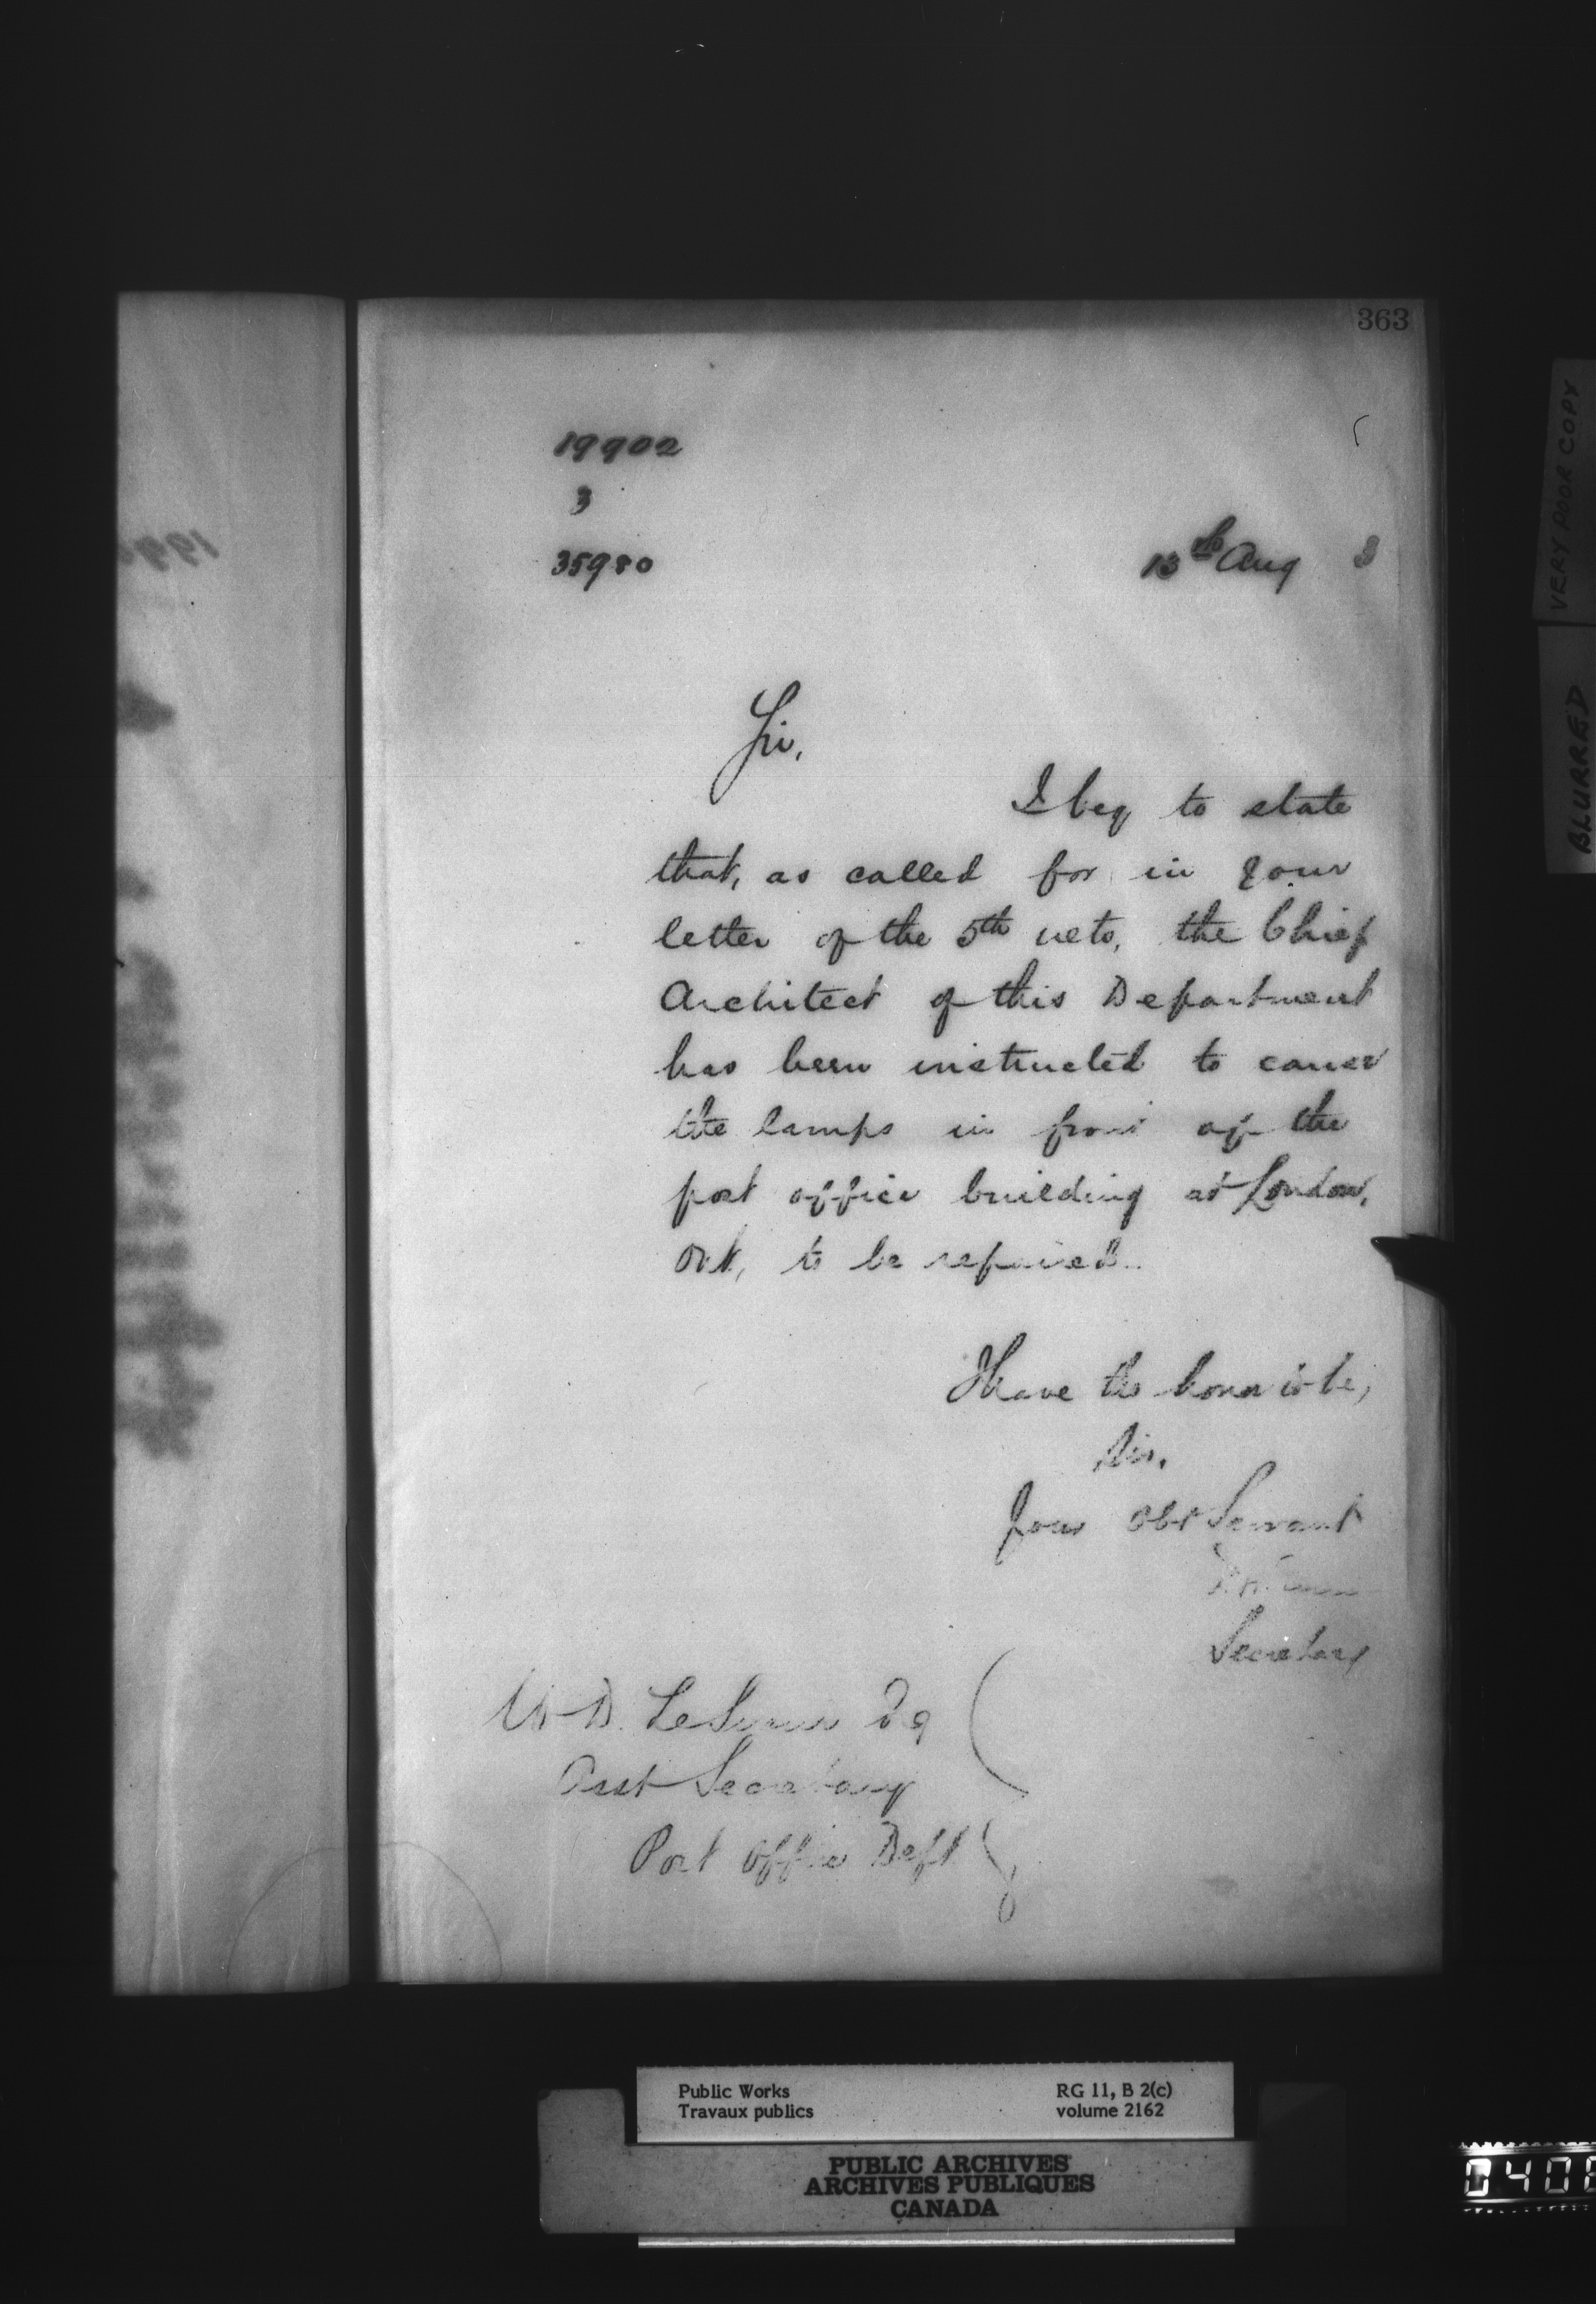 363
19902
3
35980
13th Aug 3
Sir,
I beg to state
that, as called for in your
letter of the 5th
the Chief
Architect of this Department
has been instructed to cause
the lamps in front of the
post office building at London,
Ont, to be repaired.
I have the honor to be,
Sir,
Your Obt Servant
Secretary
W. D. LeSueur Esq
Asst Secretary
Post Office Dept
VERY POOR COPY
BLURRED
Public Works
Travaux publics
RG 11, B 2(c)
volume 2162
PUBLIC ARCHIVES
ARCHIVES PUBLIQUES
CANADA